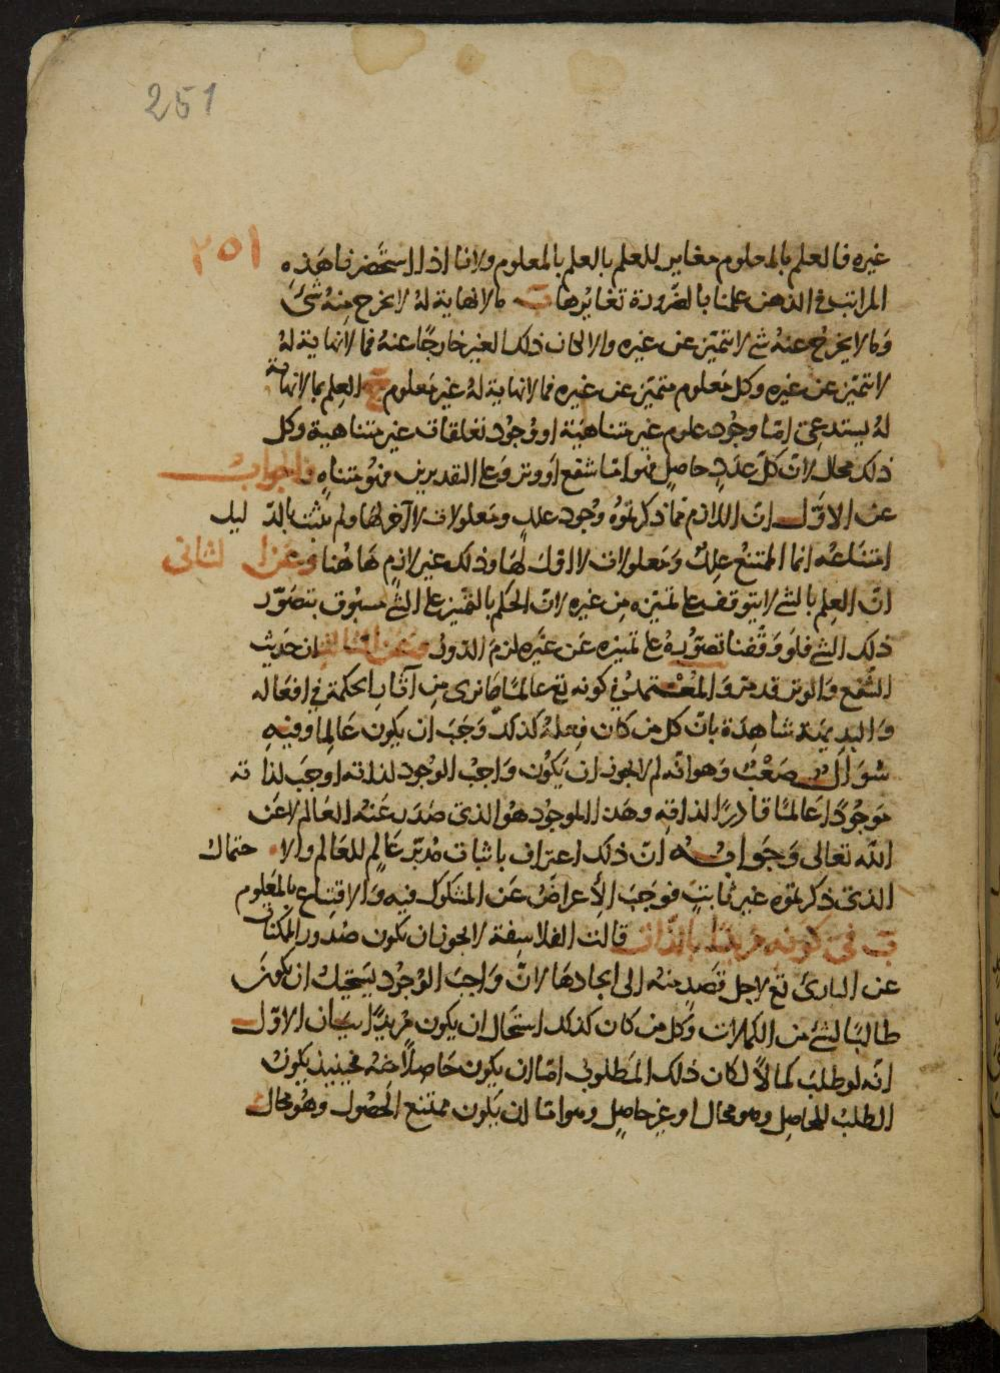 251
٢٥١
غيره فالعلم بالمعلوم مغاير للعلم بالعلم بالمعلوم ولانا اذا استحضرنا هذه
المراتب في الذهن علمنا بالضرورة تغايرها ب مالانهاية له لا يخرج منه شئ
وما لا يخرج عنه شئ لا تتميز عن غيره والا لكان ذلك الغير خارجًا عنه فما لانهاية له
لا تتميز عن غيره وكل معلوم متميز عن غيره فما لانهاية له غير معلوم ج العلم بما لانهاية
له يستدعى اما وجود علوم غير متناهية او وجود تعلقات غير متناهية وكل
ذلك محال لان كل عدد حاصل فهو اما شفع او وتر وعلى التقديرين فهو متناه والجواب
عن الاول ان اللازم مما ذكرتموه وجود علل ومعلولات لا آخر لها ولم يثبت بالدليل
امتناعه انما الممتنع علل ومعلولات لا اول لها وذلك غير لازم هاهنا وعن الثانى
ان العلم بالشئ لا يتوقف على تميزه من غيره لان الحكم بالتميز على الشئ مسبوق بتصور
ذلك الشئ فلو وقفنا تصوره على تميزه عن غيره لزم الدور وعن الثالث ان حديث
الشفع والوتر قد مر والمعتمد في كونه تع عالمًا ما نرى من آثار الحكمة في افعاله
والبديهة شاهدة بان كل من كان فعله كذلك وجب ان يكون عالما وفيه
سؤال صعب وهو انه لم لا يجوز ان يكون واجب الوجود لذاته اوجب لذاته
موجودًا عالمًا قادرًا لذاته وهذا الموجود هو الذى صدر عنه العالم لا عن
الله تعالى وجوابه ان ذلك اعتراف باثبات مدبر عالم للعالم والاحتمال
الذى ذكرتموه غير ثابت فوجب الأعراض عن المشكوك فيه والاقتناع بالمعلوم
ب في كونه مريدا بالذات قالت الفلاسفة لا يجوز ان يكون صدور الممكنات
عن البارئ تع لاجل قصد منه الى ايجادها لان واجب الوجود يستحيل ان يكون
طالبًا لشئ من الكمالات وكل من كان كذلك استحال ان يكون مريدًا بيان الاول
انه لو طلب كمالاً لكان ذلك المطلوب اما ان يكون حاصلاً له فحينيذ يكون
الطلب للحاصل وهو محال او غير حاصل وهو اما ان يكون ممتنع الحصول وهو محال